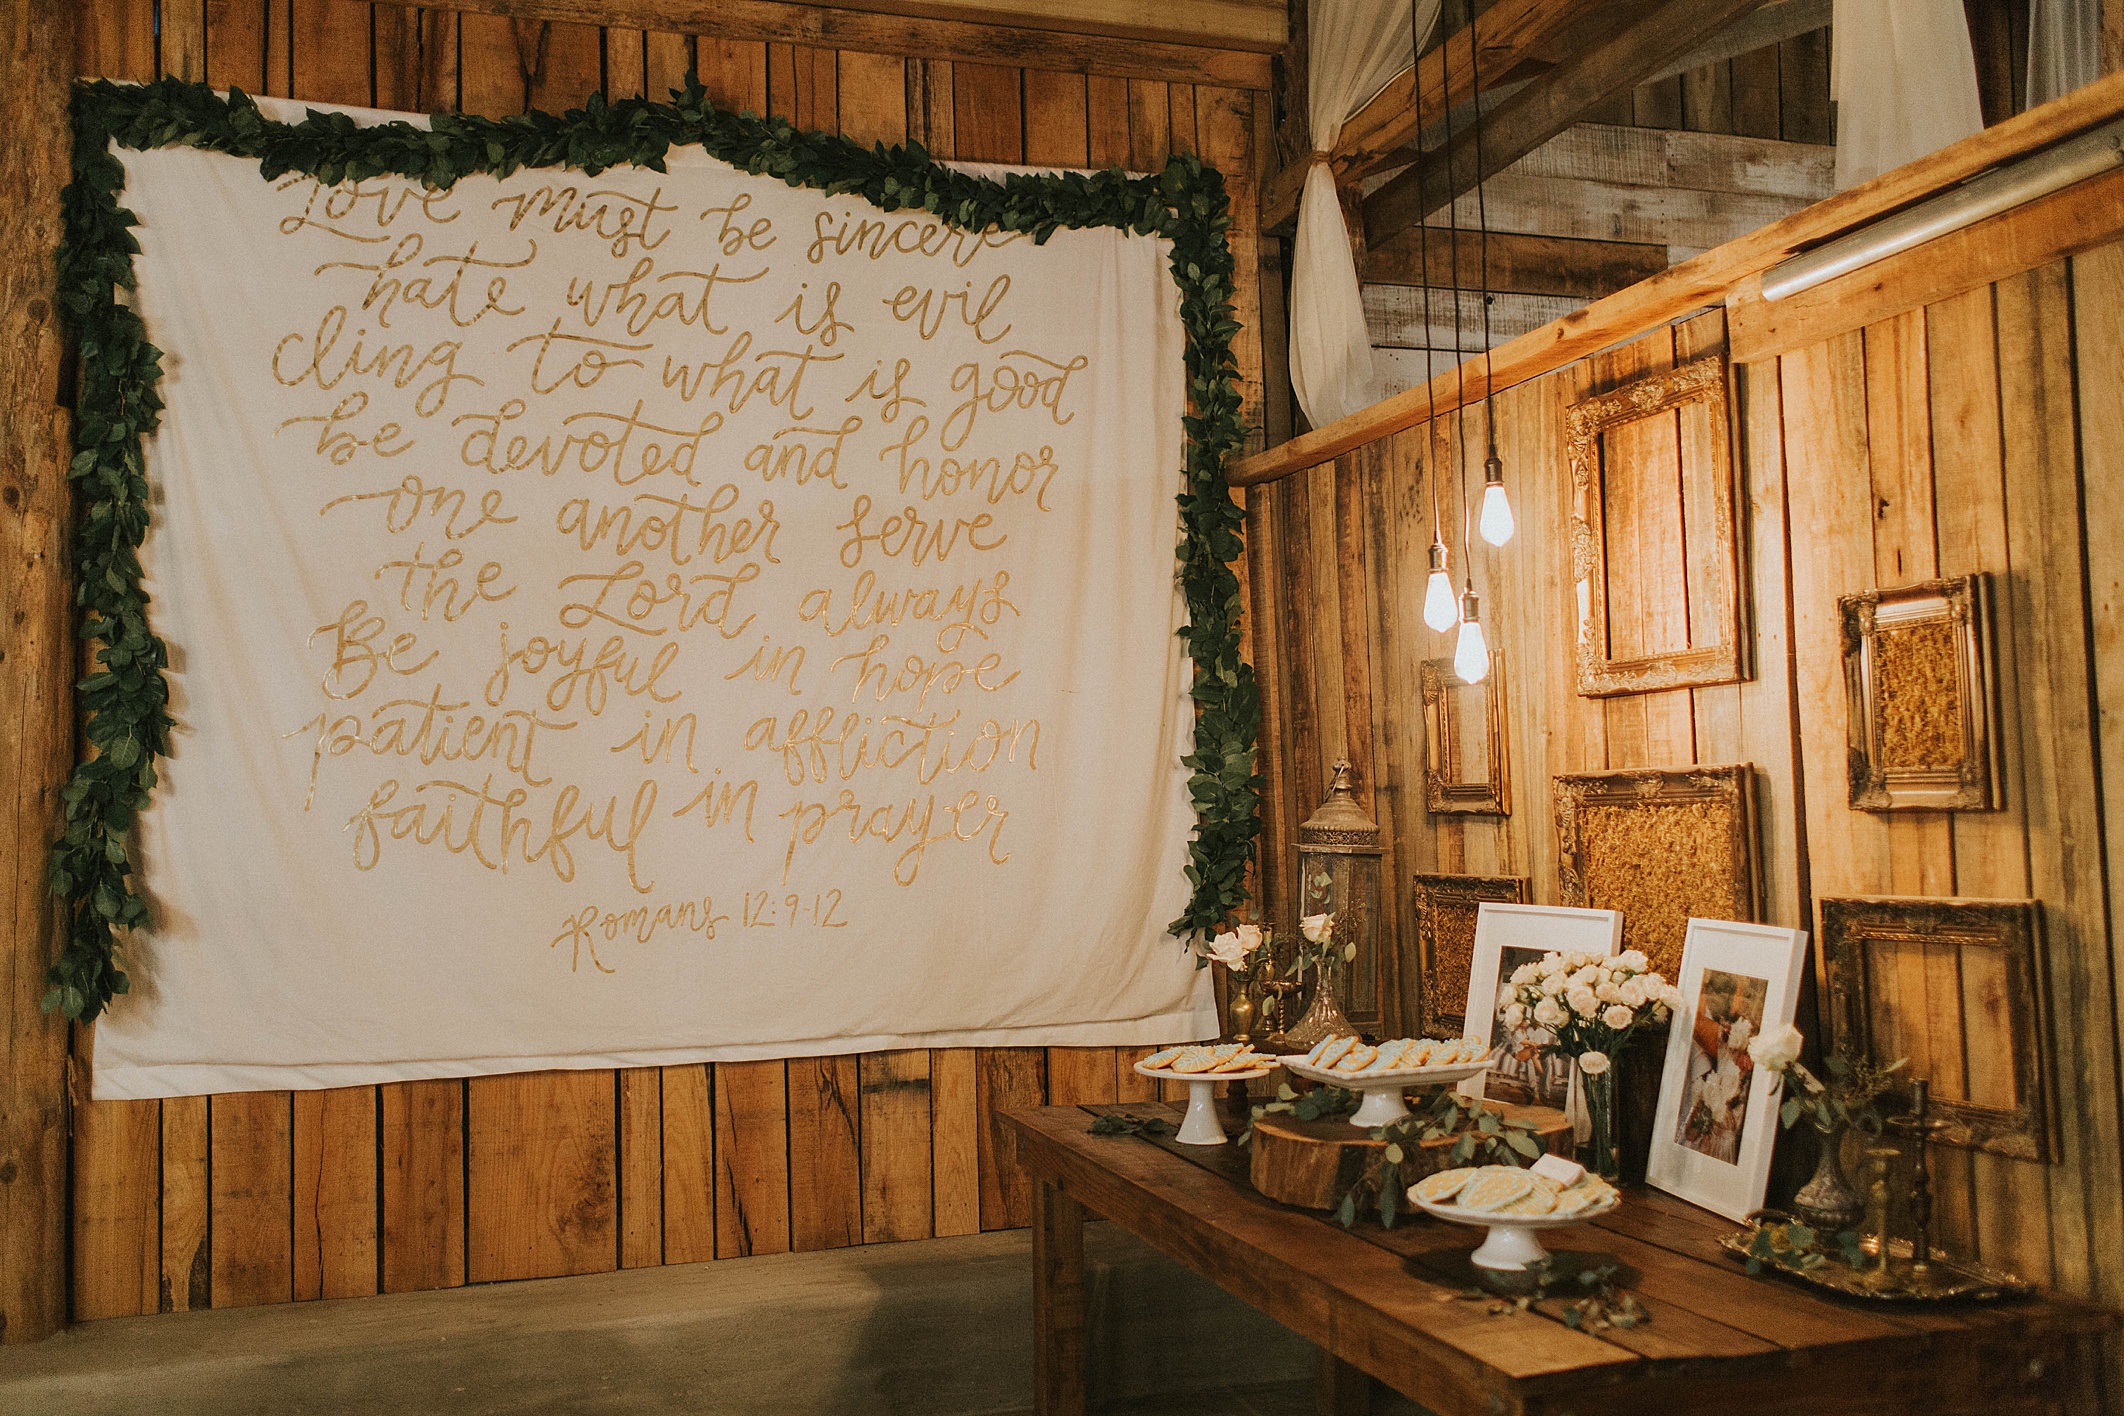 Love must be sincere
hate what is evil
cling to what is good
be devoted and honor
one another serve
the Lord always
Be joyful in hope
patient in affliction
faithful in prayer
Romans 12:9-12